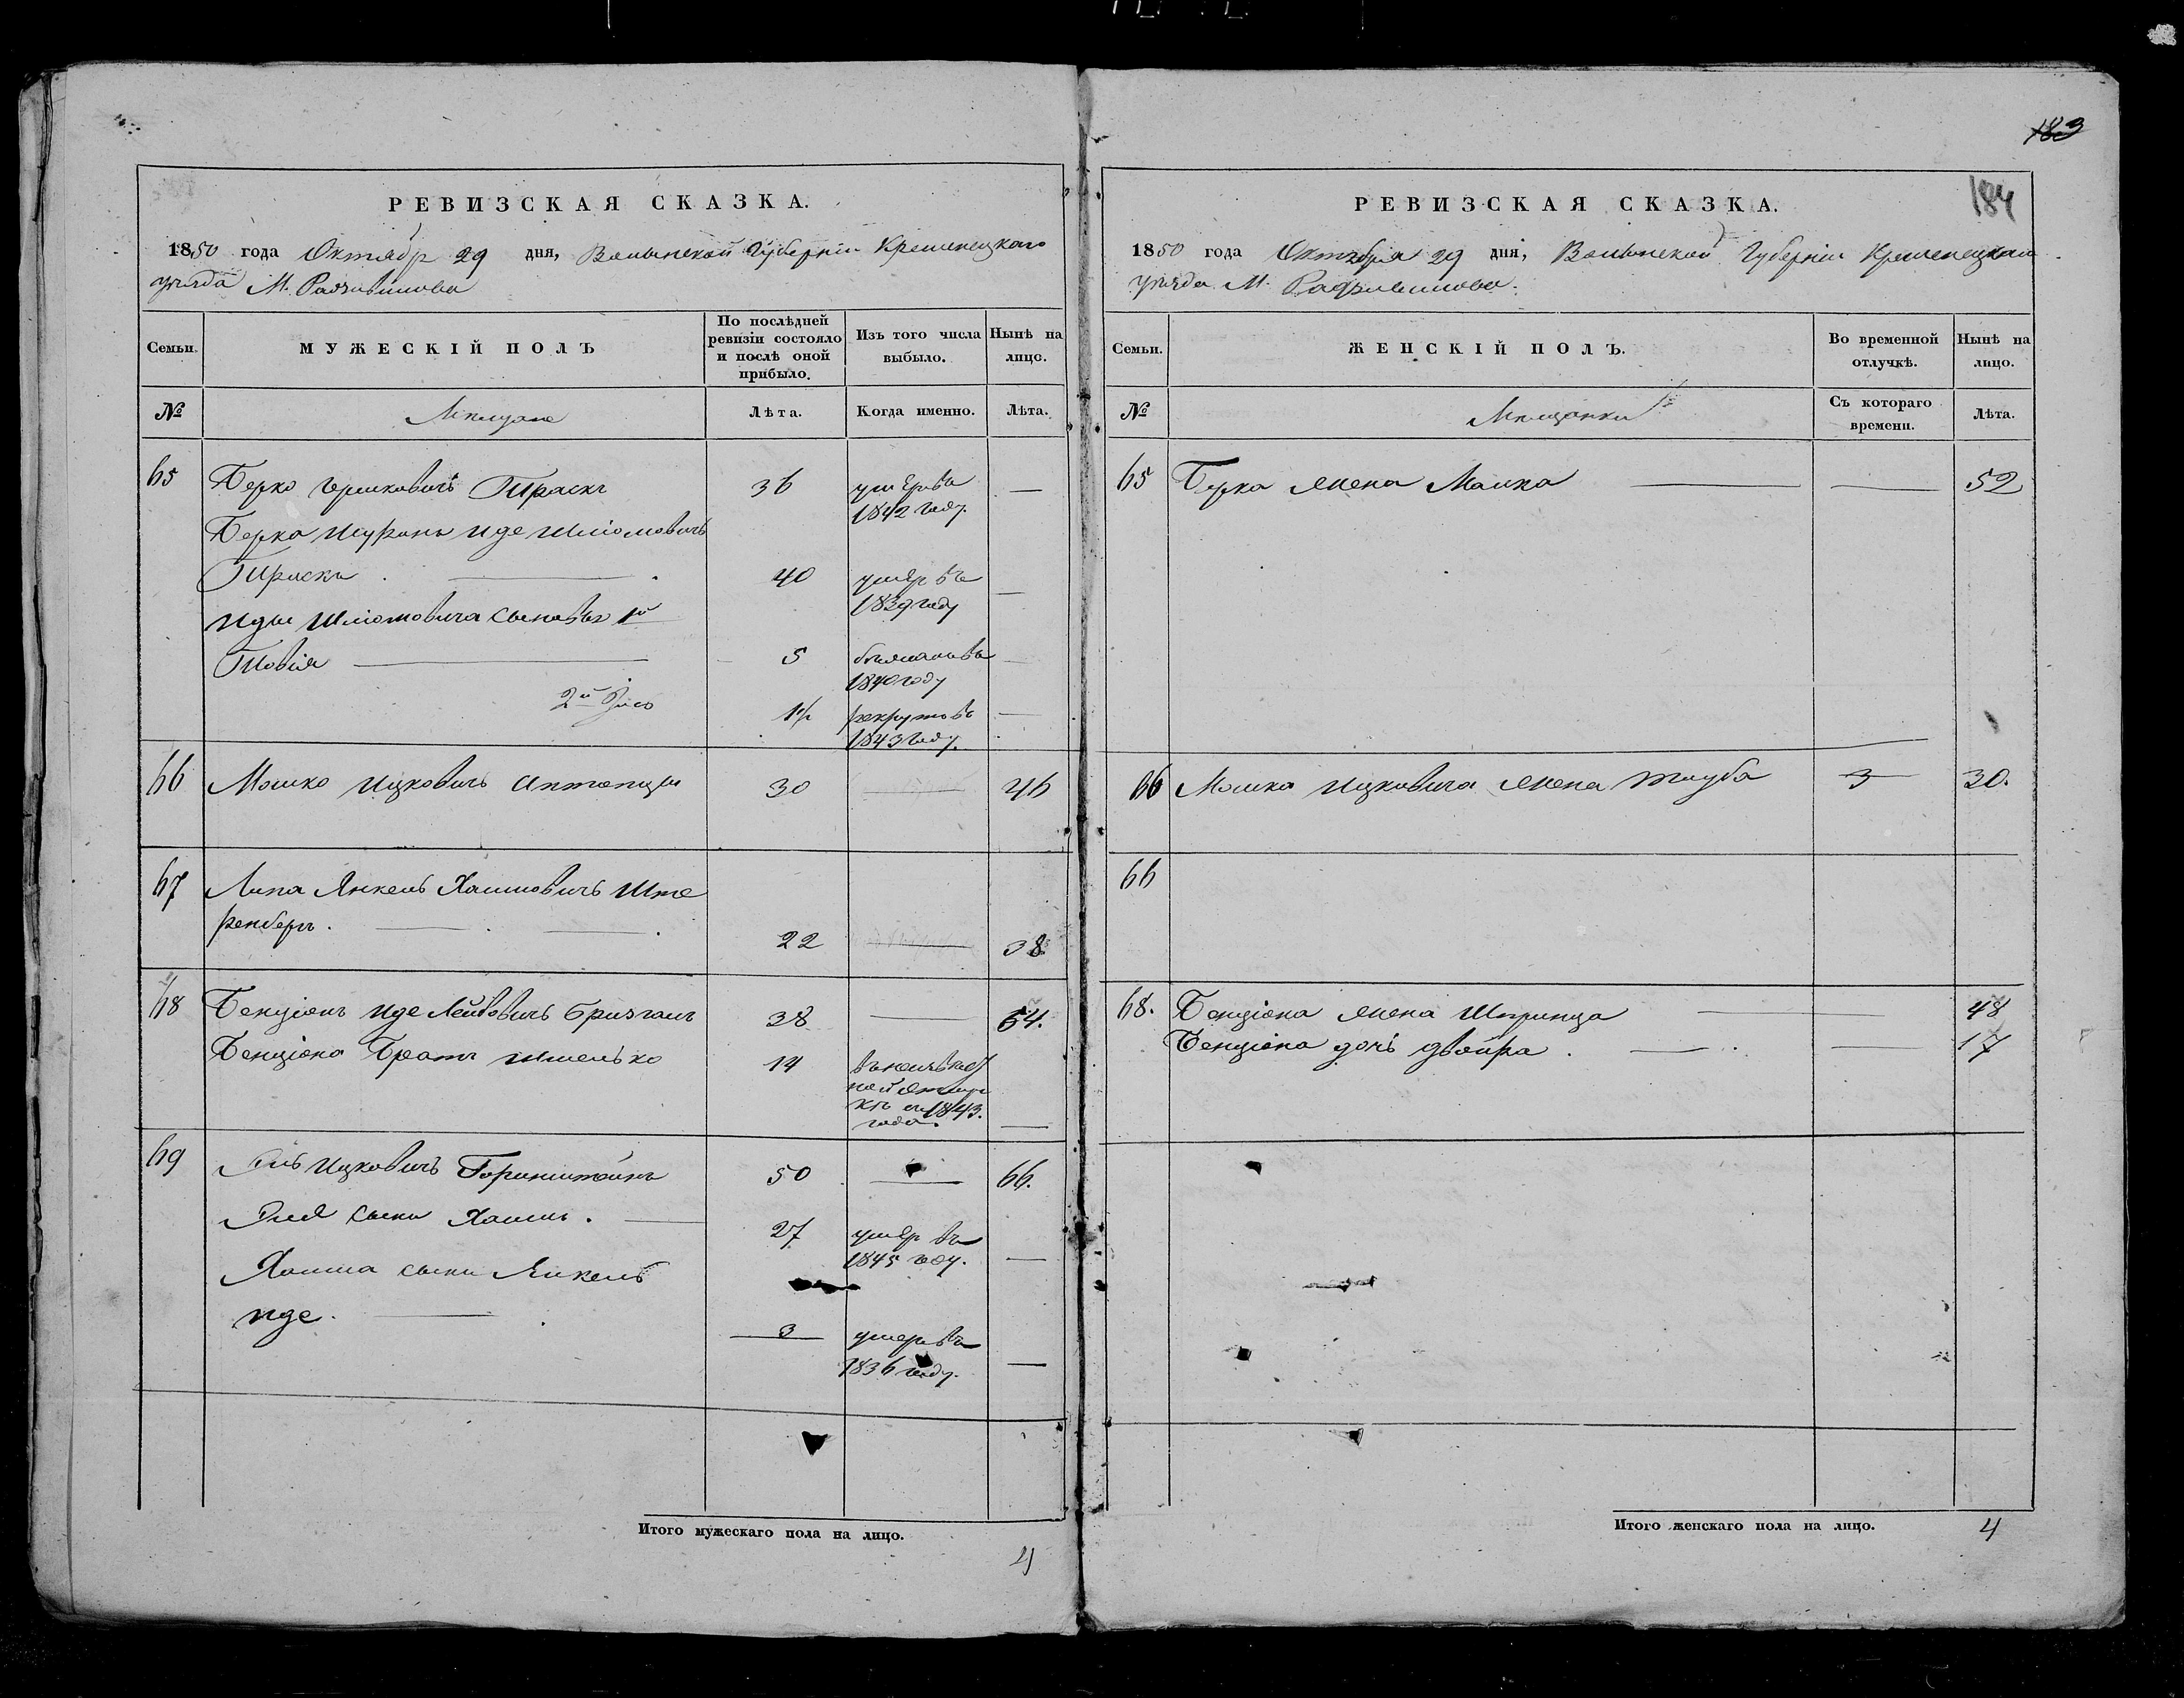 183
184
РЕВИЗСКАЯ СКАЗКА.
1850 года Октябр 29 дня, Волынской Губерніи Кременецкаго
уѣзда М. Радзивилова
Семьи.
МУЖЕСКІЙ ПОЛЪ
По послѣдней ревизіи состояло и послѣ оной прибыло.
Изъ того числа выбыло.
Нынѣ на лицо.
№
Мѣщане
Лѣта.
Когда именно.
Лѣта.
65 Берко Гершковичъ 36 умеръ въ —
1842 году.
Берка Шуринъ Иде Шліомовичъ
40 умеръ въ
1839 году —
Иды Шліомовича сыновья 1й
Товія — 5 въ
1840 году —
2й Зусь 14 рекрутовъ —
1843 году.
66 Мошко Ицковичъ 30 — 46
67 Липа Янкель Хаимовичъ Ште
ренберъ. 22 — 38
68 Бенціонъ Иде Лейбовичъ 38 — 54.
Бенціона Братъ Шмелько 14
1843.
года. —
69 Ицковичъ Горинштейнъ 50 — 66.
сынъ Хаимъ. 27 умеръ въ
1845 году. —
Хаима сынъ Янкель
Иде. 3 умеръ въ
1836 году. —
Итого мужескаго пола на лицо.
4
РЕВИЗСКАЯ СКАЗКА.
1850 года Октября 29 дня, Волынской Губерніи Кременецкаго
уѣзда М. Радзивилова.
Семьи.
ЖЕНСКІЙ ПОЛЪ.
Во временной отлучкѣ.
Нынѣ на лицо.
№
Мѣщанки
Съ котораго времени.
Лѣта.
65 Берка жена Малка — — 52
66 Мошка Ицковича жена Тауба 3 30.
66
68. Бенціона жена Шпринца — 48
Бенціона дочь Двойра. — — 17
Итого женскаго пола на лицо. 4